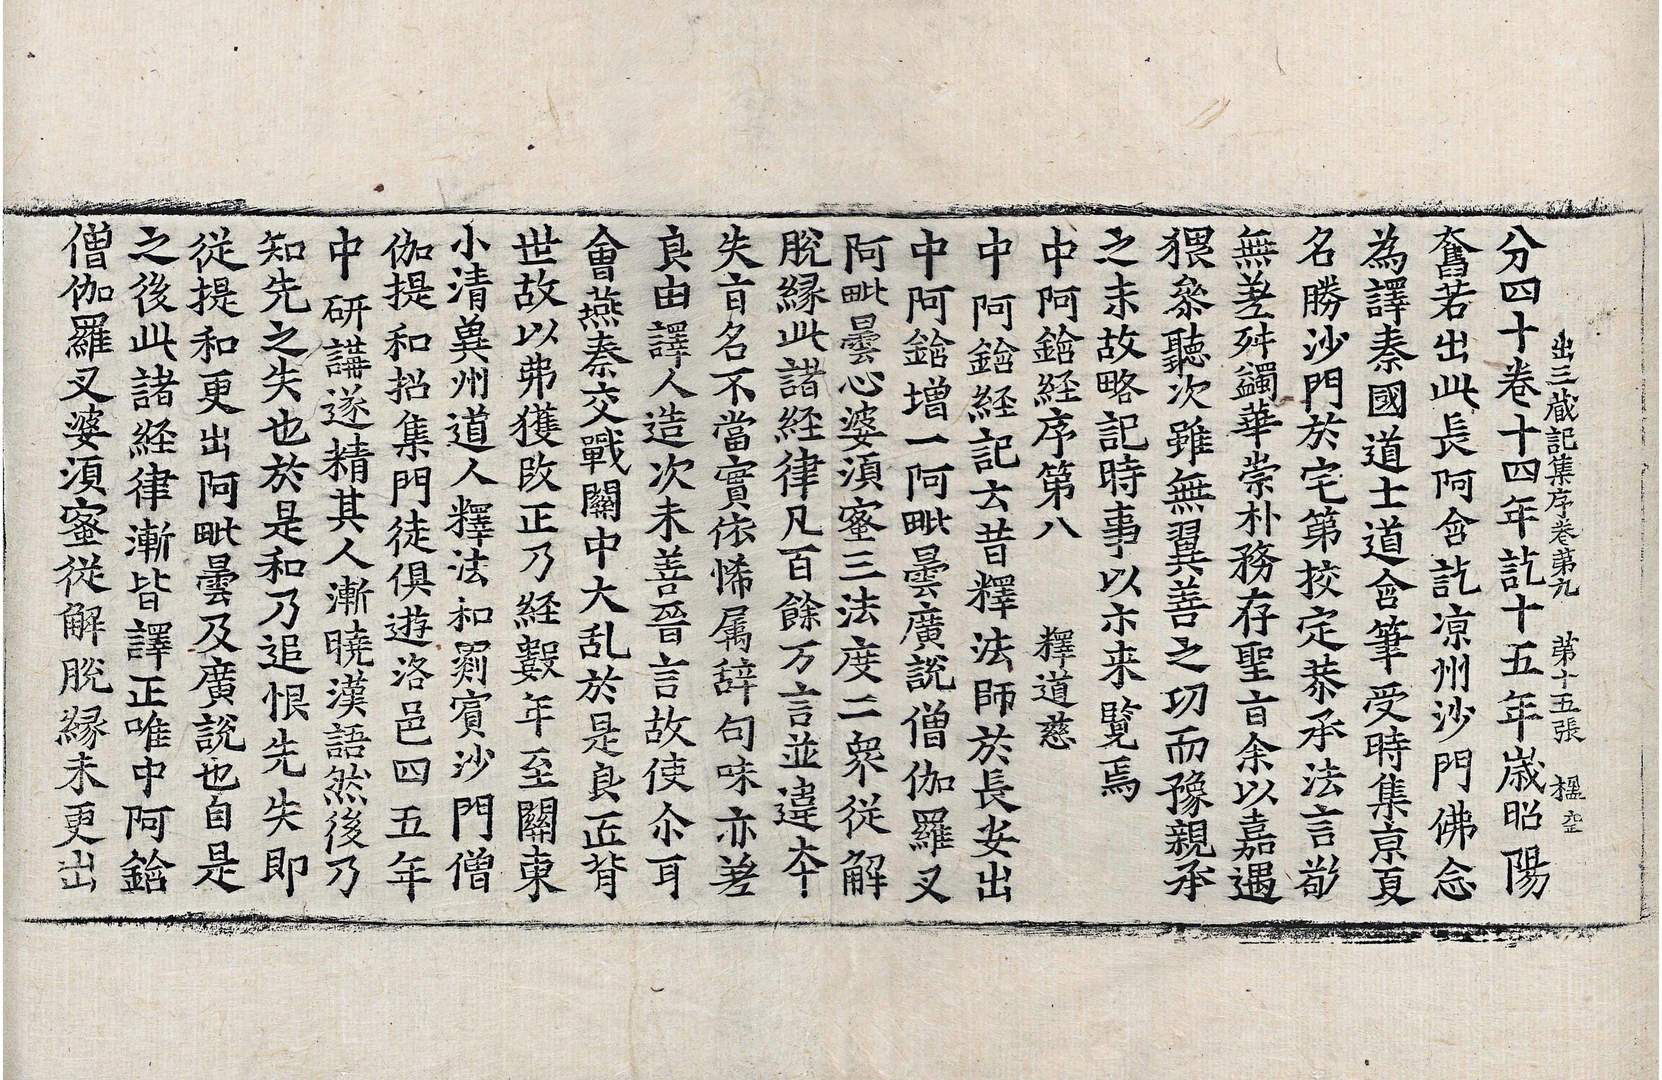 出三蔵記集序卷第九　第十五張　楹
分四十卷十四年訖十五年歲昭陽
奮若出此長阿含訖涼州沙門佛念
為譯秦國道士道含筆受時集京夏
名勝沙門於宅第挍定恭承法言敬
無差舛蠲華崇朴務存聖旨余以嘉遇
猥叅聽次雖無翼善之功而豫親承
之末故略記時事以示来覽焉
中阿鋡経序第八　釋道慈
中阿鋡経記云昔釋法師於長安出
中阿鋡增一阿毗曇廣說僧伽羅叉
阿毗曇心婆湏蜜三法度二衆從解
脫縁此諸経律凡百餘万言並違夲
失旨名不當實依悕属辞句味亦差
良由譯人造次未善晉言故使尒耳
會燕秦交戰關中大乱於是良匠背
世故以弗獲改正乃経數年至關東
小清冀州道人釋法和罽賔沙門僧
伽提和招集門徒俱遊洛邑四五年
中研講遂精其人漸曉漢語然後乃
知先之失也於是和乃追恨先失即
從提和更出阿毗曇及廣說也自是
之後此諸経律漸皆譯正唯中阿鋡
僧伽羅叉婆湏蜜從解脫縁未更出